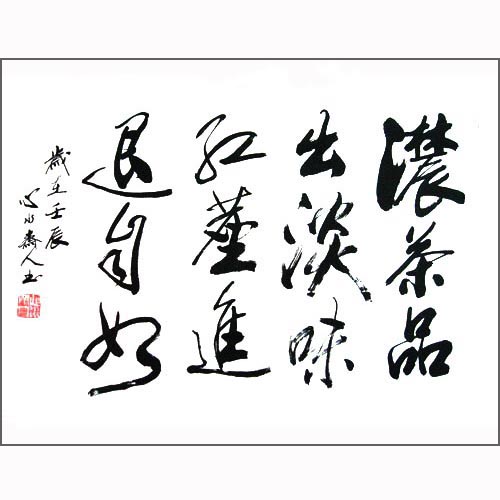 濃茶品
出淡味
紅塵進
退自如
歲在壬辰
心水齋人書